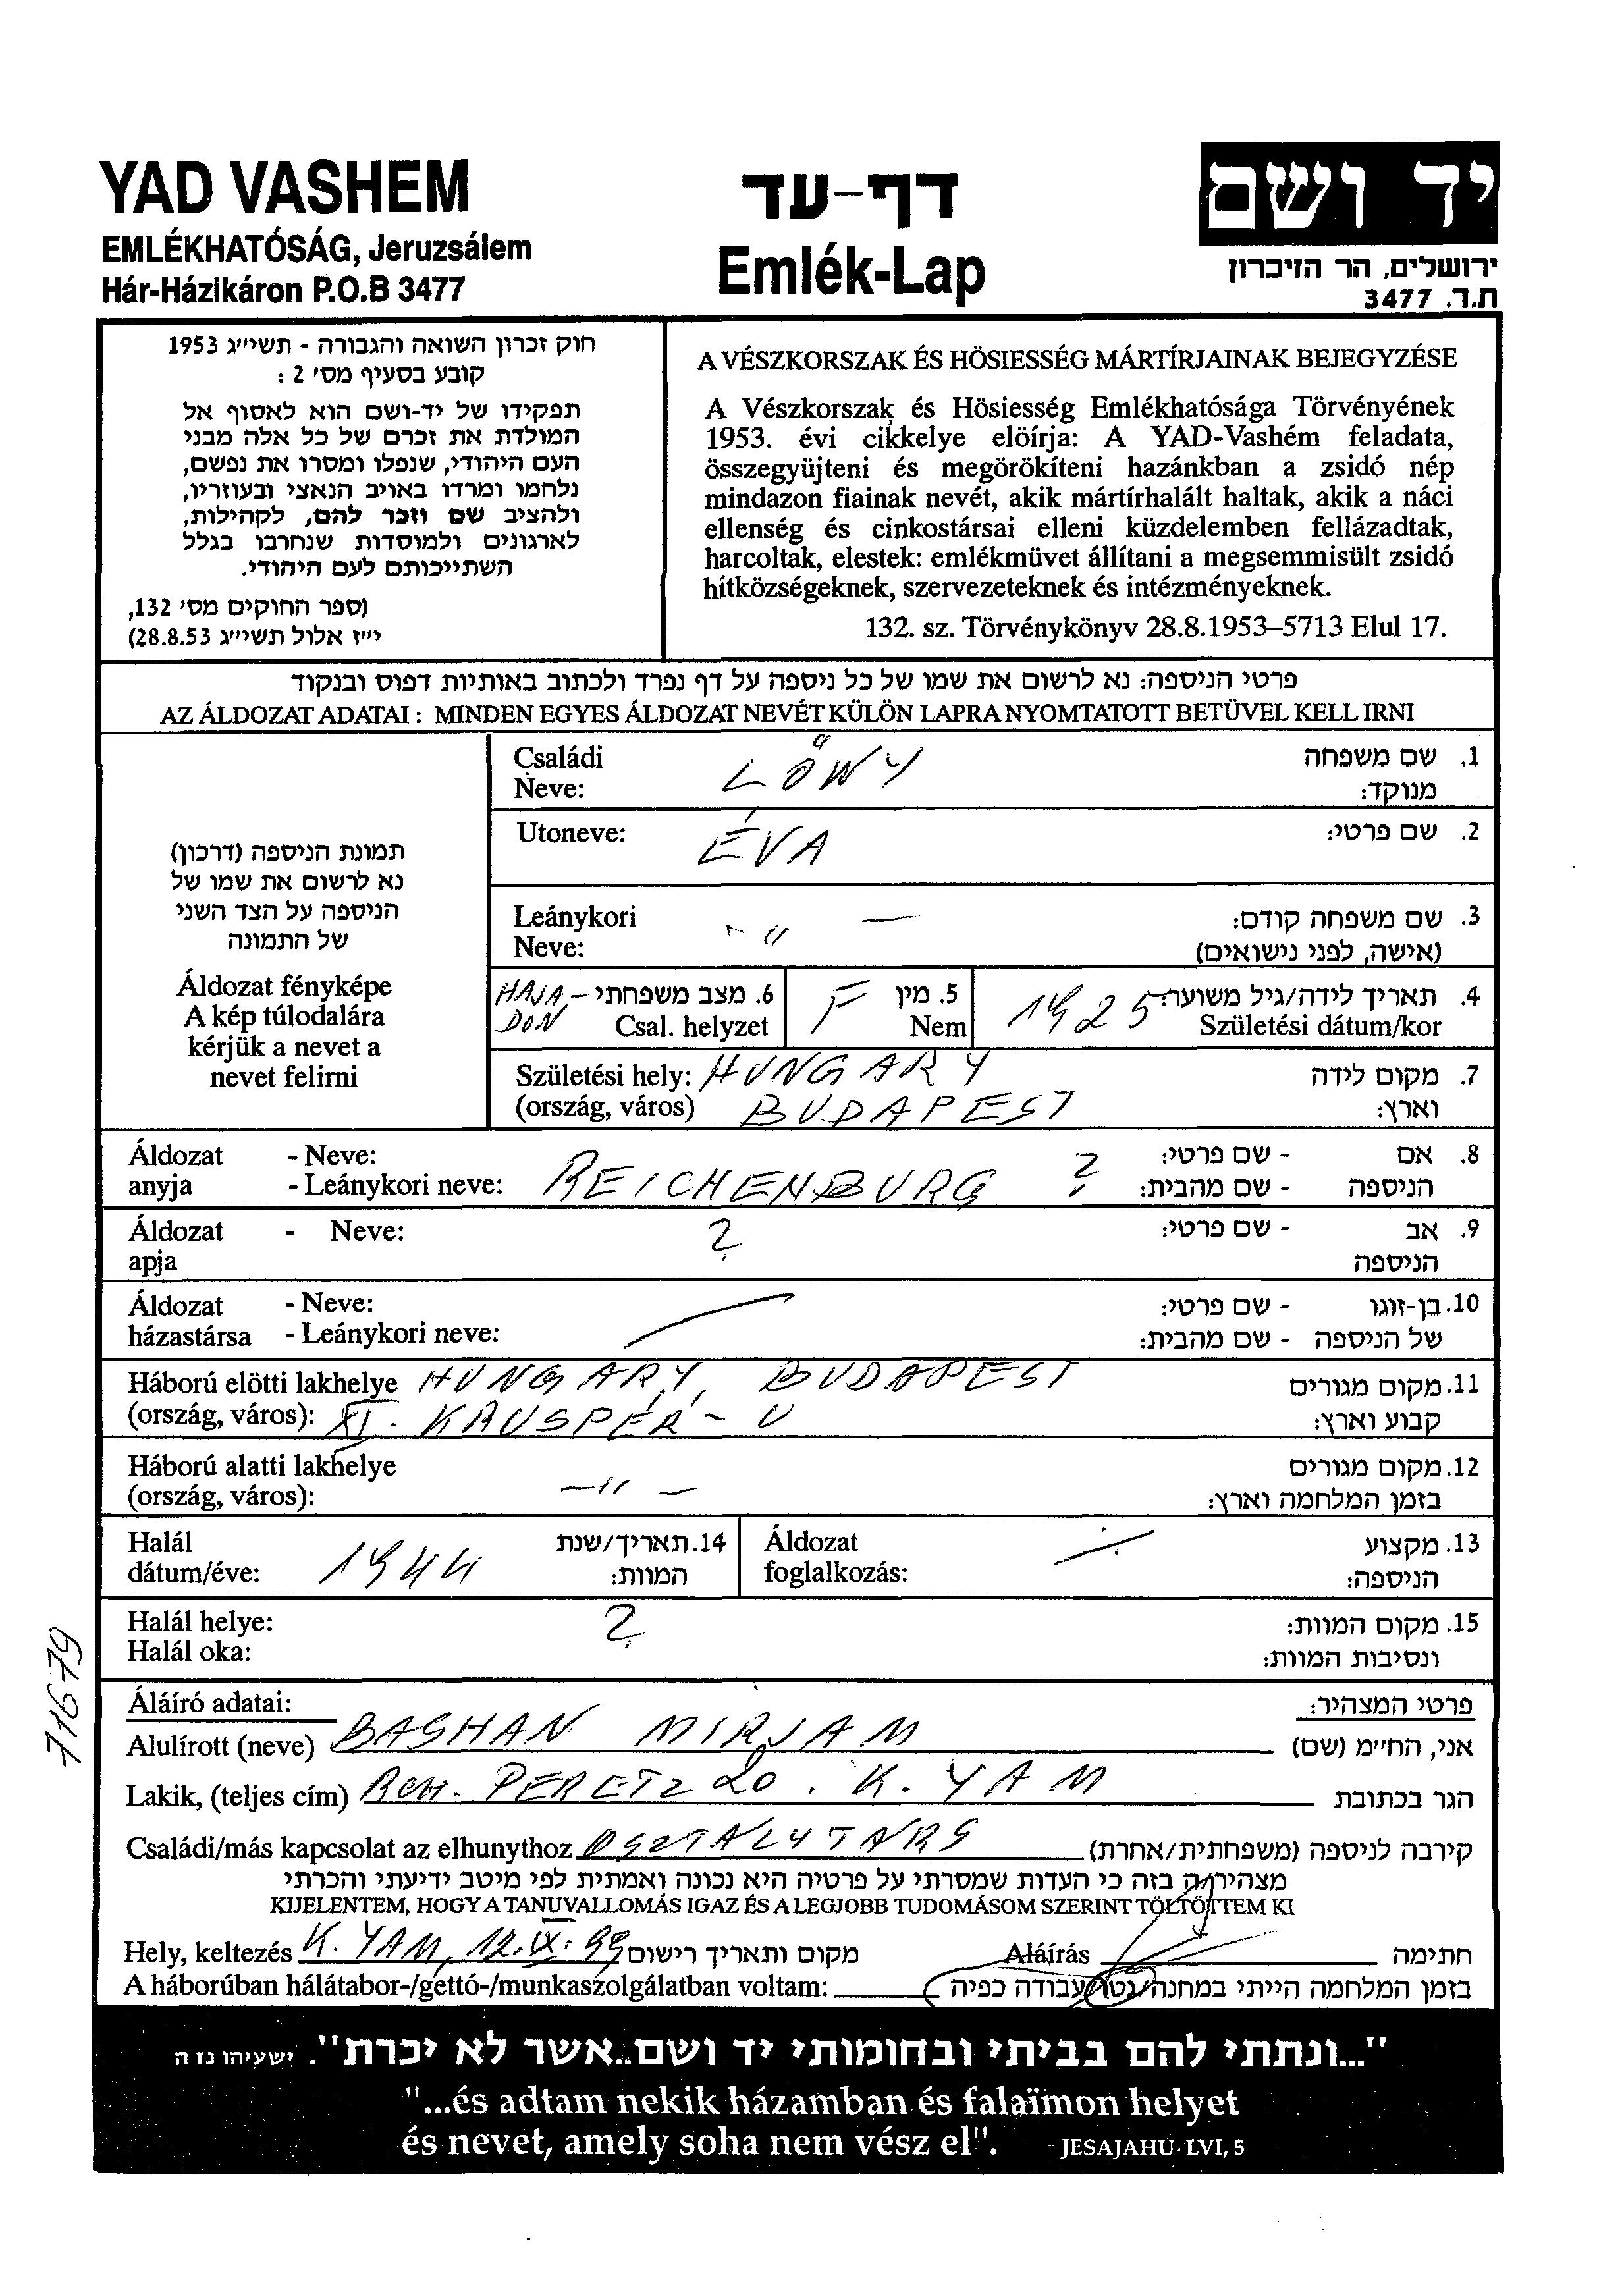 YAD VASHEM
EMLÉKHATÓSÁG, Jeruzsálem
Hár-Házikáron P.O.B 3477
דף-עד
Emlék-Lap
יד ושם
ירושלים, הר הזיכרון
ת.ד. 3477
חוק זכרון השואה והגבורה - תשי״ג 1953
קובע בסעיף מס׳ 2 :
תפקידו של יד-ושם הוא לאסוף אל
המולדת את זכרם של כל אלה מבני
העם היהודי, שנפלו ומסרו את נפשם,
נלחמו ומרדו באויב הנאצי ובעוזריו,
ולהציב שם וזכר להם, לקהילות,
לארגונים ולמוסדות שנחרבו בגלל
השתייכותם לעם היהודי.
(ספר החוקים מס׳ 132,
י״ז אלול תשי״ג 28.8.53)
A VÉSZKORSZAK ÉS HÖSIESSÉG MÁRTÍRJAINAK BEJEGYZÉSE
A Vészkorszak és Hösiesség Emlékhatósága Törvényének
1953. évi cikkelye elöírja: A YAD-Vashém feladata,
összegyüjteni és megörökíteni hazánkban a zsidó nép
mindazon fiainak nevét, akik mártírhalált haltak, akik a náci
ellenség és cinkostársai elleni küzdelemben fellázadtak,
harcoltak, elestek: emlékmüvet állítani a megsemmisült zsidó
hítközségeknek, szervezeteknek és intézményeknek.
132. sz. Törvénykönyv 28.8.1953–5713 Elul 17.
פרטי הניספה: נא לרשום את שמו של כל ניספה על דף נפרד ולכתוב באותיות דפוס ובנקוד
AZ ÁLDOZAT ADATAI : MINDEN EGYES ÁLDOZAT NEVÉT KÜLÖN LAPRA NYOMTATOTT BETÜVEL KELL IRNI
תמונת הניספה (דרכון)
נא לרשום את שמו של
הניספה על הצד השני
של התמונה
Áldozat fényképe
A kép túlodalára
kérjük a nevet a
nevet felirni
Családi LŐWY 1. שם משפחה
Neve: מנוקד:
Utoneve: ÉVA 2. שם פרטי:
Leánykori - " — 3. שם משפחה קודם:
Neve: (אישה, לפני נישואים)
HAJA- 6. מצב משפחתי F 5. מין 1925 4. תאריך לידה/גיל משוער:
DON Csal. helyzet Nem Születési dátum/kor
Születési hely: HUNGARY 7. מקום לידה
(ország, város) BUDAPEST וארץ:
Áldozat - Neve: - שם פרטי: 8. אם
anyja - Leánykori neve: REICHENBURG ? - שם מהבית: הניספה
Áldozat - Neve: ? - שם פרטי: 9. אב
apja הניספה
Áldozat - Neve: - שם פרטי: 10. בן-זוגו
házastársa - Leánykori neve: - שם מהבית: של הניספה
Háború elötti lakhelye HUNGARY, BUDAPEST 11. מקום מגורים
(ország, város): XI. KAUSPÉR-U קבוע וארץ:
Háború alatti lakhelye 12. מקום מגורים
(ország, város): — " — בזמן המלחמה וארץ:
Halál 14. תאריך/שנת Áldozat 13. מקצוע
dátum/éve: 1944 המוות: foglalkozás: הניספה:
Halál helye: ? 15. מקום המוות:
Halál oka: ונסיבות המוות:
71679
Áláíró adatai: פרטי המצהיר:
Alulírott (neve) BASHAN MIRJAM אני, החי״מ (שם)
Lakik, (teljes cím) RCH. PERETZ 20. K. YAM הגר בכתובת
Családi/más kapcsolat az elhunythoz OSZTALYTARS קירבה לניספה (משפחתית/אחרת)
מצהיר/ה בזה כי העדות שמסרתי על פרטיה היא נכונה ואמתית לפי מיטב ידיעתי והכרתי
KIJELENTEM, HOGY A TANUVALLOMÁS IGAZ ÉS A LEGJOBB TUDOMÁSOM SZERINT TÖLTÖTTEM KI
Hely, keltezés K. YAM, 12.IX.99 מקום ותאריך רישום Aláírás חתימה
A háborúban hálátabor-/gettó-/munkaszolgálatban voltam: בזמן המלחמה הייתי במחנה/גטו/עבודה כפיה
"...ונתתי להם בביתי ובחומותי יד ושם..אשר לא יכרת". ישעיהו נז ה
"...és adtam nekik házamban és falaïmon helyet
és nevet, amely soha nem vész el". - JESAJAHU LVI, 5